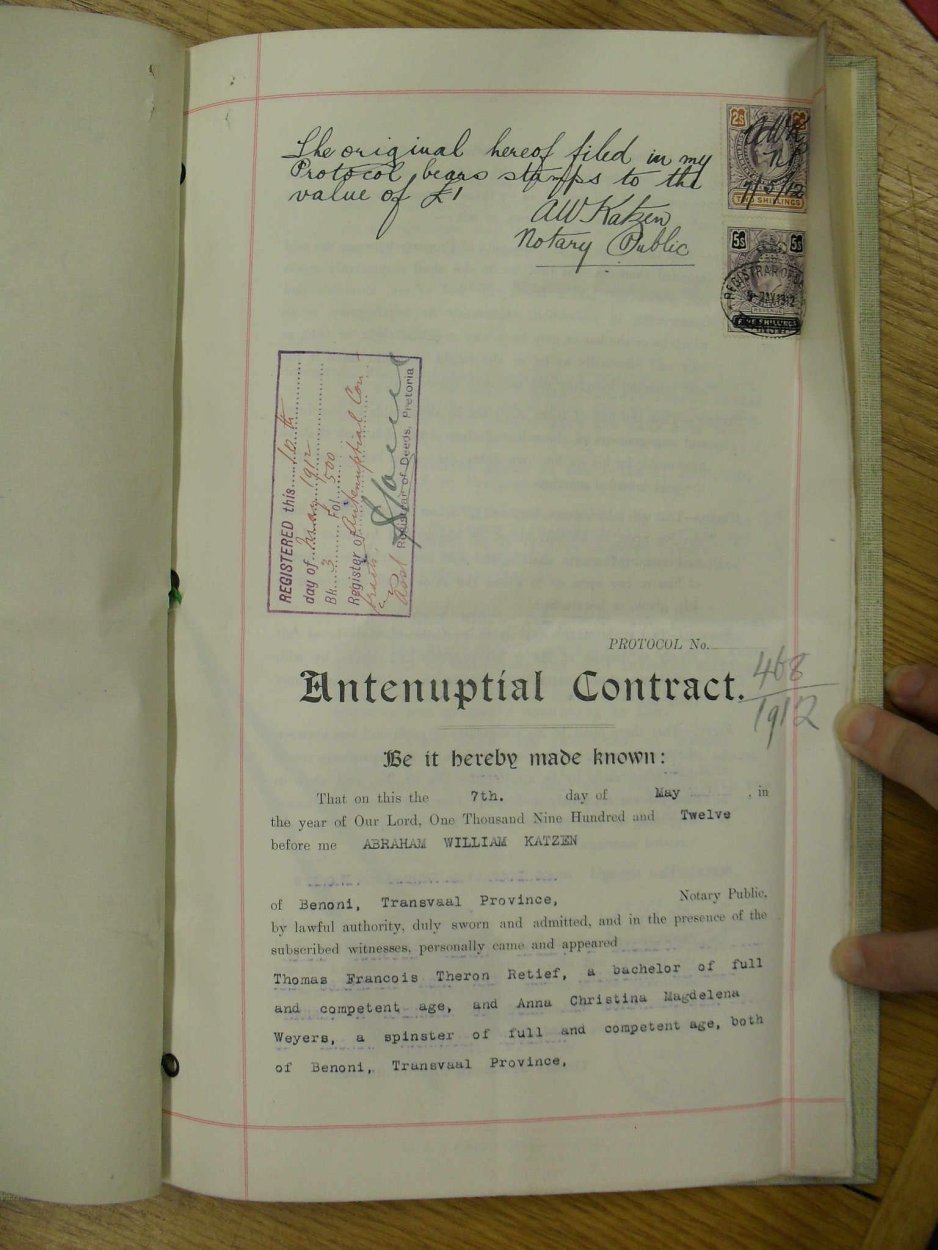 The original hereof filed in my
Protocol bears stamps to the
value of £1
AW Katzen
Notary Public
2s
AWK
NP
7/5/12
TWO SHILLINGS
5s 5s
REGISTRAR OF
MAY 1912
REVENUE
FIVE SHILLINGS
REGISTERED this 10th
day of May 1912
Bk. 3 Fol. 500
Register of Antenuptial Con-
Registrar of Deeds, Pretoria
PROTOCOL No.
468
1912
Antenuptial Contract.
Be it hereby made known:
That on this the 7th. day of May , in
the year of Our Lord, One Thousand Nine Hundred and Twelve
before me ABRAHAM WILLIAM KATZEN
of Benoni, Transvaal Province, Notary Public,
by lawful authority, duly sworn and admitted, and in the presence of the
subscribed witnesses, personally came and appeared
Thomas Francois Theron Retief, a bachelor of full
and competent age, and Anna Christina Magdelena
Weyers, a spinster of full and competent age, both
of Benoni, Transvaal Province,